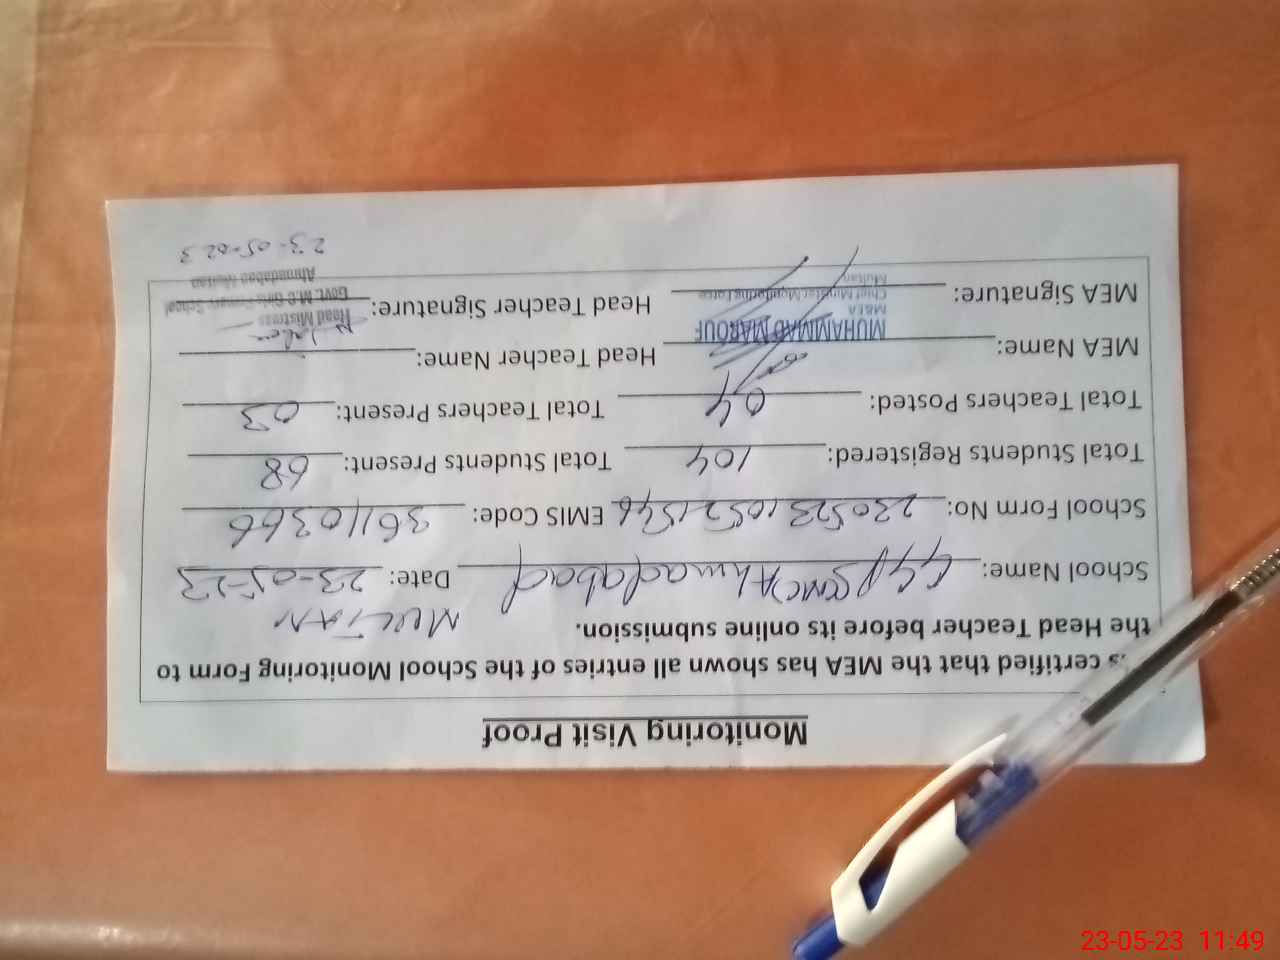 Monitoring Visit Proof
is certified that the MEA has shown all entries of the School Monitoring Form to
the Head Teacher before its online submission.
MULTAN
School Name: GGPS(MC)Ahmadabad Date: 23-05-23
School Form No: 23052310521546 EMIS Code: 36110366
Total Students Registered: 104 Total Students Present: 68
Total Teachers Posted: 04 Total Teachers Present: 03
MEA Name: MUHAMMAD MAROUF Head Teacher Name:
M&EA
Chief Minister Monitoring Force
Multan
MEA Signature: Head Teacher Signature:
Head Mistress
Govt. M.C Girls Primary School
Ahmadabad Multan
23-05-023
23-05-23 11:49